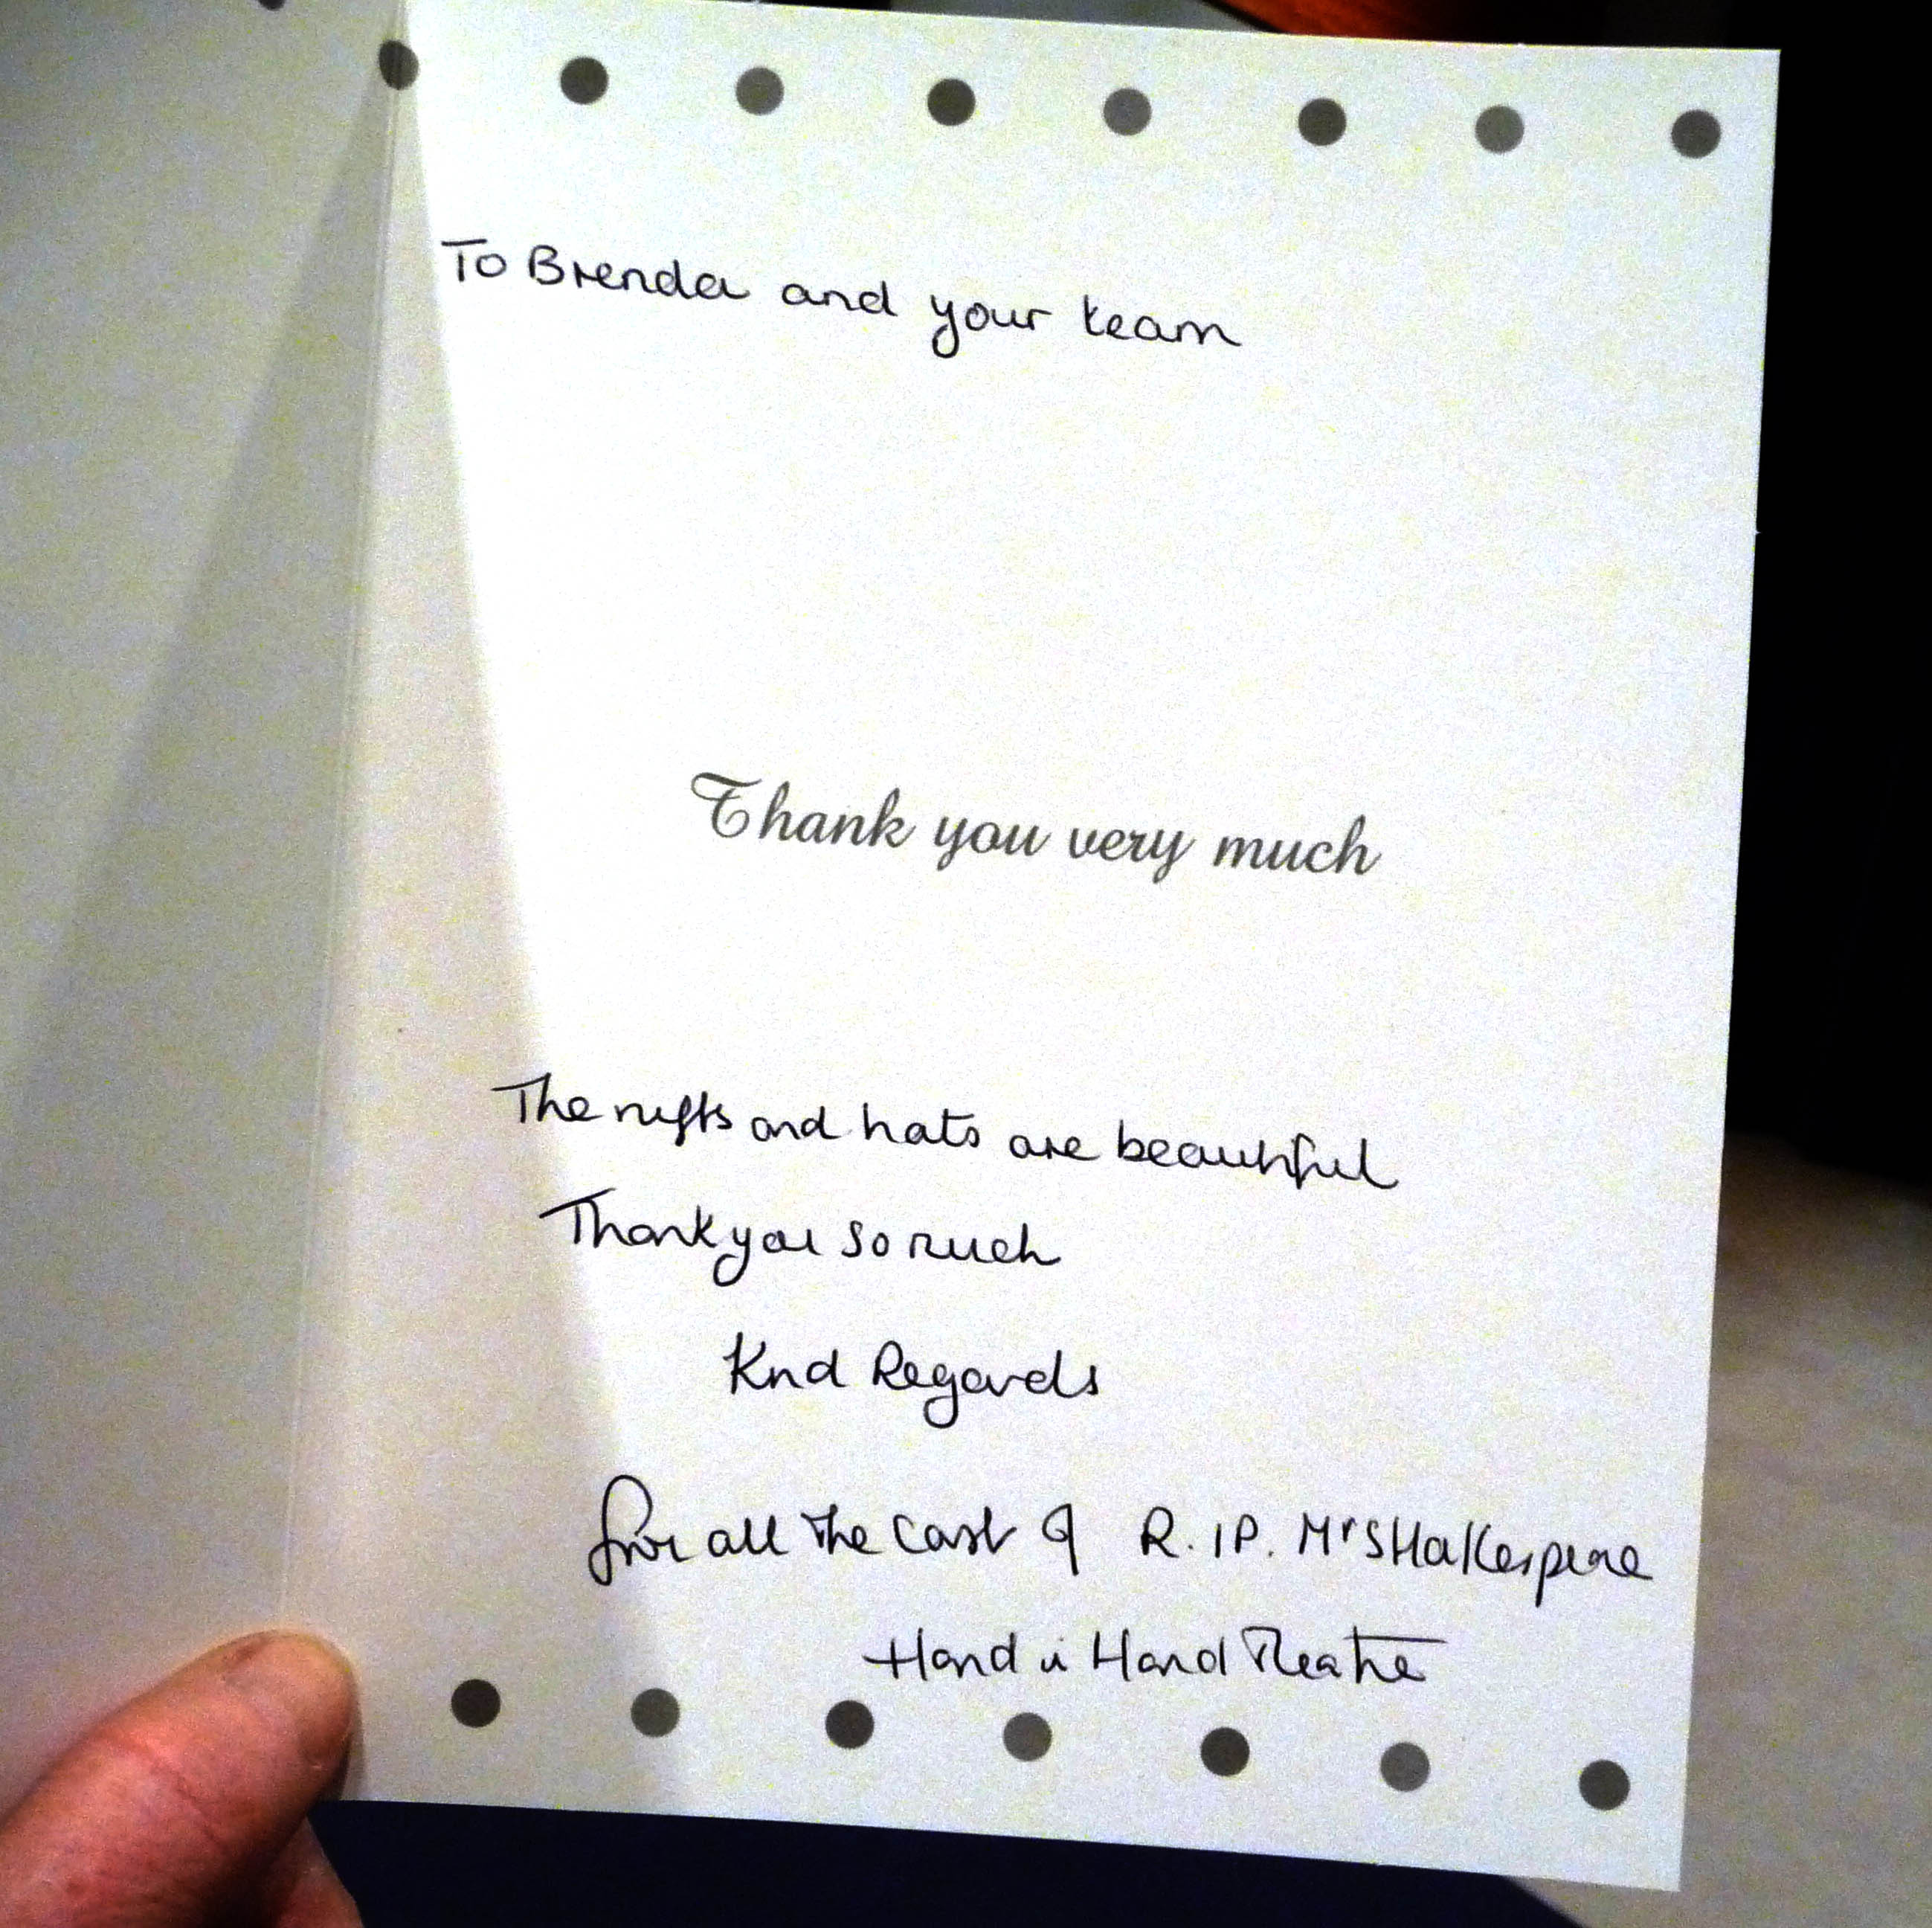 To Brenda and your team
Thank you very much
The ruffs and hats are beautiful
Thank you so much
Kind Regards
from all the cast of R.I.P. Mr SHaKespeare
Hand in Hand Theatre